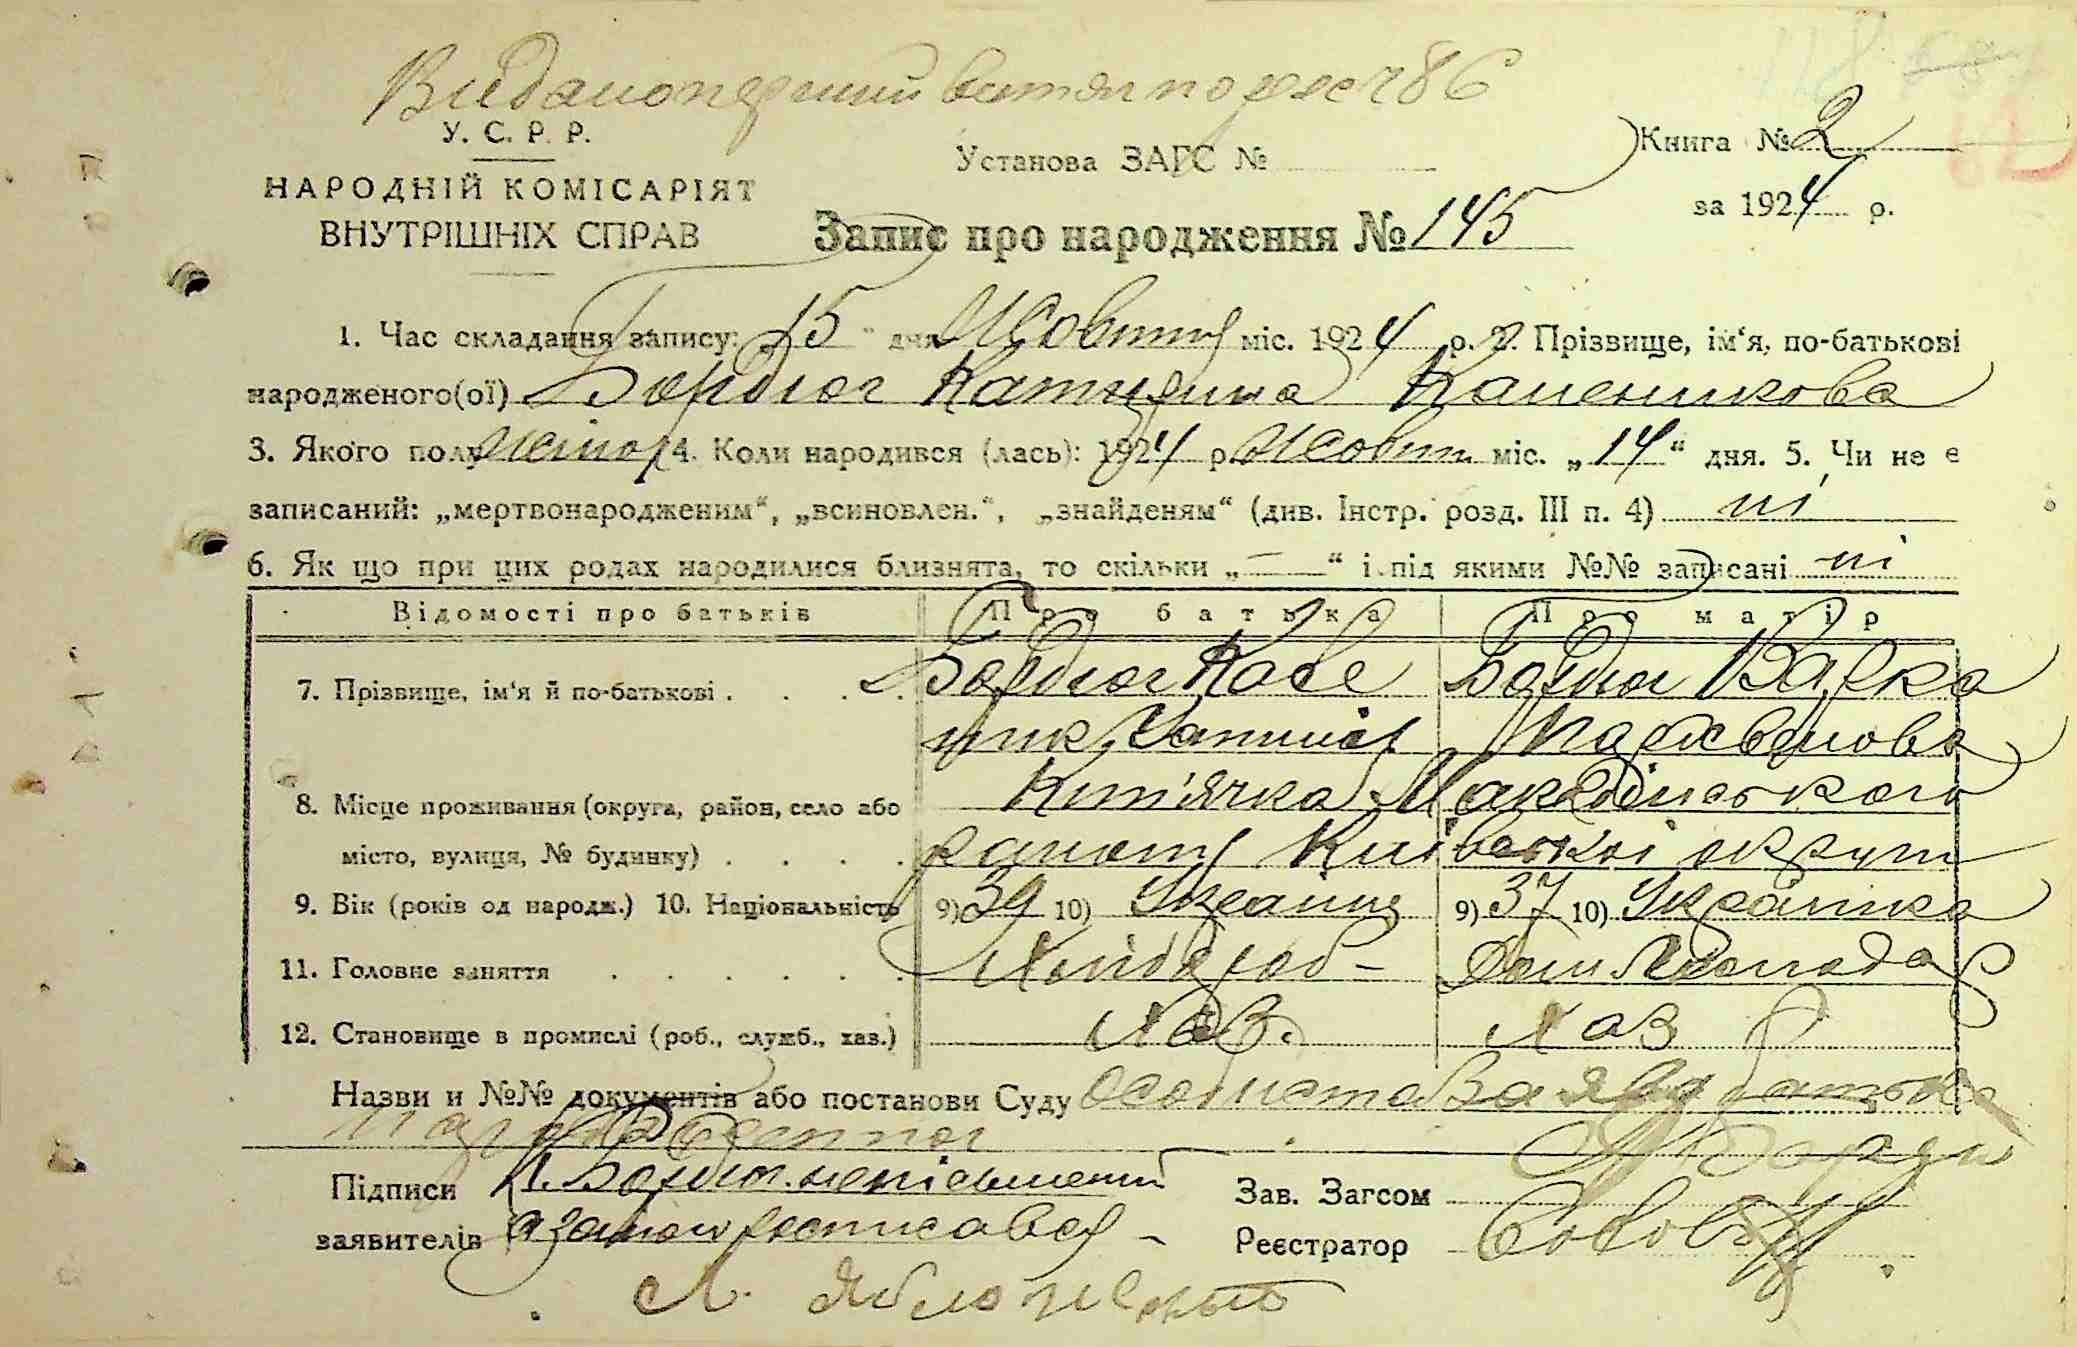 Видано первий витяг по рее ч 86
У. С. Р. Р.
НАРОДНІЙ КОМІСАРІЯТ
ВНУТРІШНІХ СПРАВ
Установа ЗАГС №
Книга № 2
за 1924 р.
Запис про народження № 145
1. Час складання запису: 15 " дня Жовтня міс. 1924 р. 2. Прізвище, ім‘я, по-батькові
народженого(ої) Бордюг Катерина Каленикова
3. Якого полу жіноч 4. Коли народився (лась): 1924 р. Жовтн міс. „14“ дня. 5. Чи не є
записаний: „мертвонародженим“, „всиновлен.“, „знайденям“ (див. Інстр. розд. III п. 4) ні
6. Як що при цих родах народилися близнята, то скільки „—“ і під якими №№ записані ні
Відомості про батьків Про батька Про матір
7. Прізвище, ім‘я й по-батькові . . . . Бордюг Кале Бордюг Варка
ник
8. Місце проживання (округа, район, село або
місто, вулиця, № будинку) . . . .
району Київської округи
9. Вік (років од народж.) 10. Національність 9) 39 10) Українц 9) 37 10) Українка
11. Головне заняття . . . . . Хлібороб- Дом Господар
12. Становище в промислі (роб., служб., хаз.) Хаз. Хаз
Назви и №№ документів або постанови Суду Особиста Заява батька
Підписи К. Бордюг неписьменний
заявителів а за його росписався -
Зав. Загсом
Реєстратор